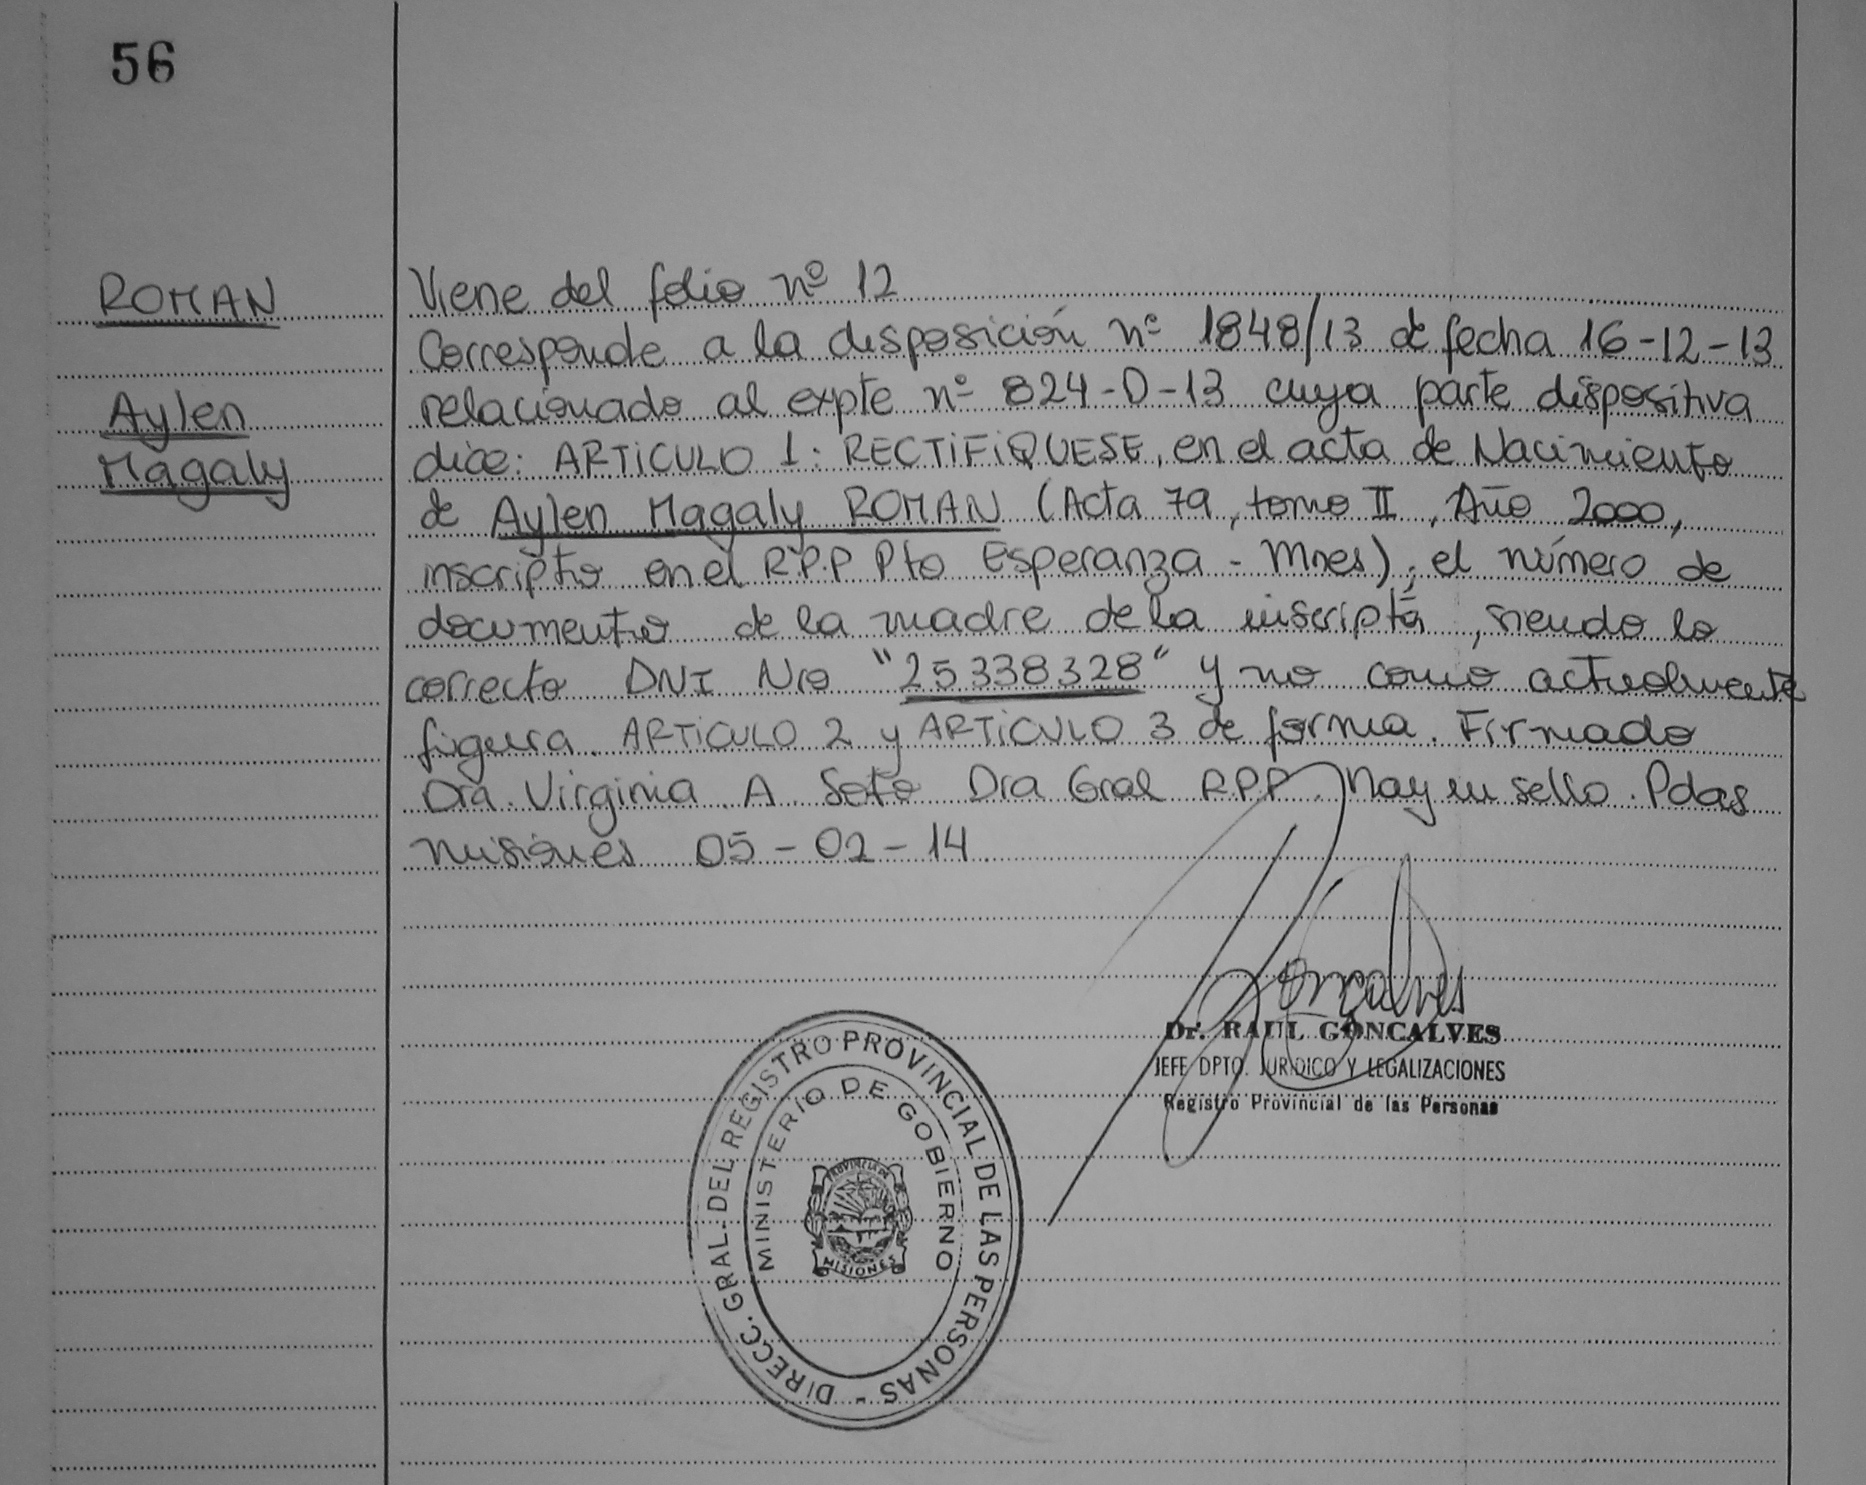 56
ROMAN
Aylen
Magaly
Viene del folio nº 12
Corresponde a la disposición nº 1848/13 de fecha 16-12-13
relacionado al expte nº 824-D-13 cuya parte dispositiva
dice: ARTICULO 1: RECTIFIQUESE, en el acta de Nacimiento
de Aylen Magaly ROMAN (Acta 79, tomo II, Año 2000,
inscripto en el R.P.P Pto Esperanza - Mnes), el número de
documento de la madre de la inscripta, siendo lo
correcto DNI Nro "25338328" y no como actualmente
figura. ARTICULO 2 y ARTICULO 3 de forma. Firmado
Dra. Virginia A. Soto Dra Gral RPP. Hay un sello. Pdas
Misiones 05-02-14
Goncalves
Dr. RAUL GONCALVES
JEFE DPTO. JURIDICO Y LEGALIZACIONES
Registro Provincial de las Personas
DIRECC. GRAL. DEL REGISTRO PROVINCIAL DE LAS PERSONAS -
MINISTERIO DE GOBIERNO
PROVINCIA DE
MISIONES